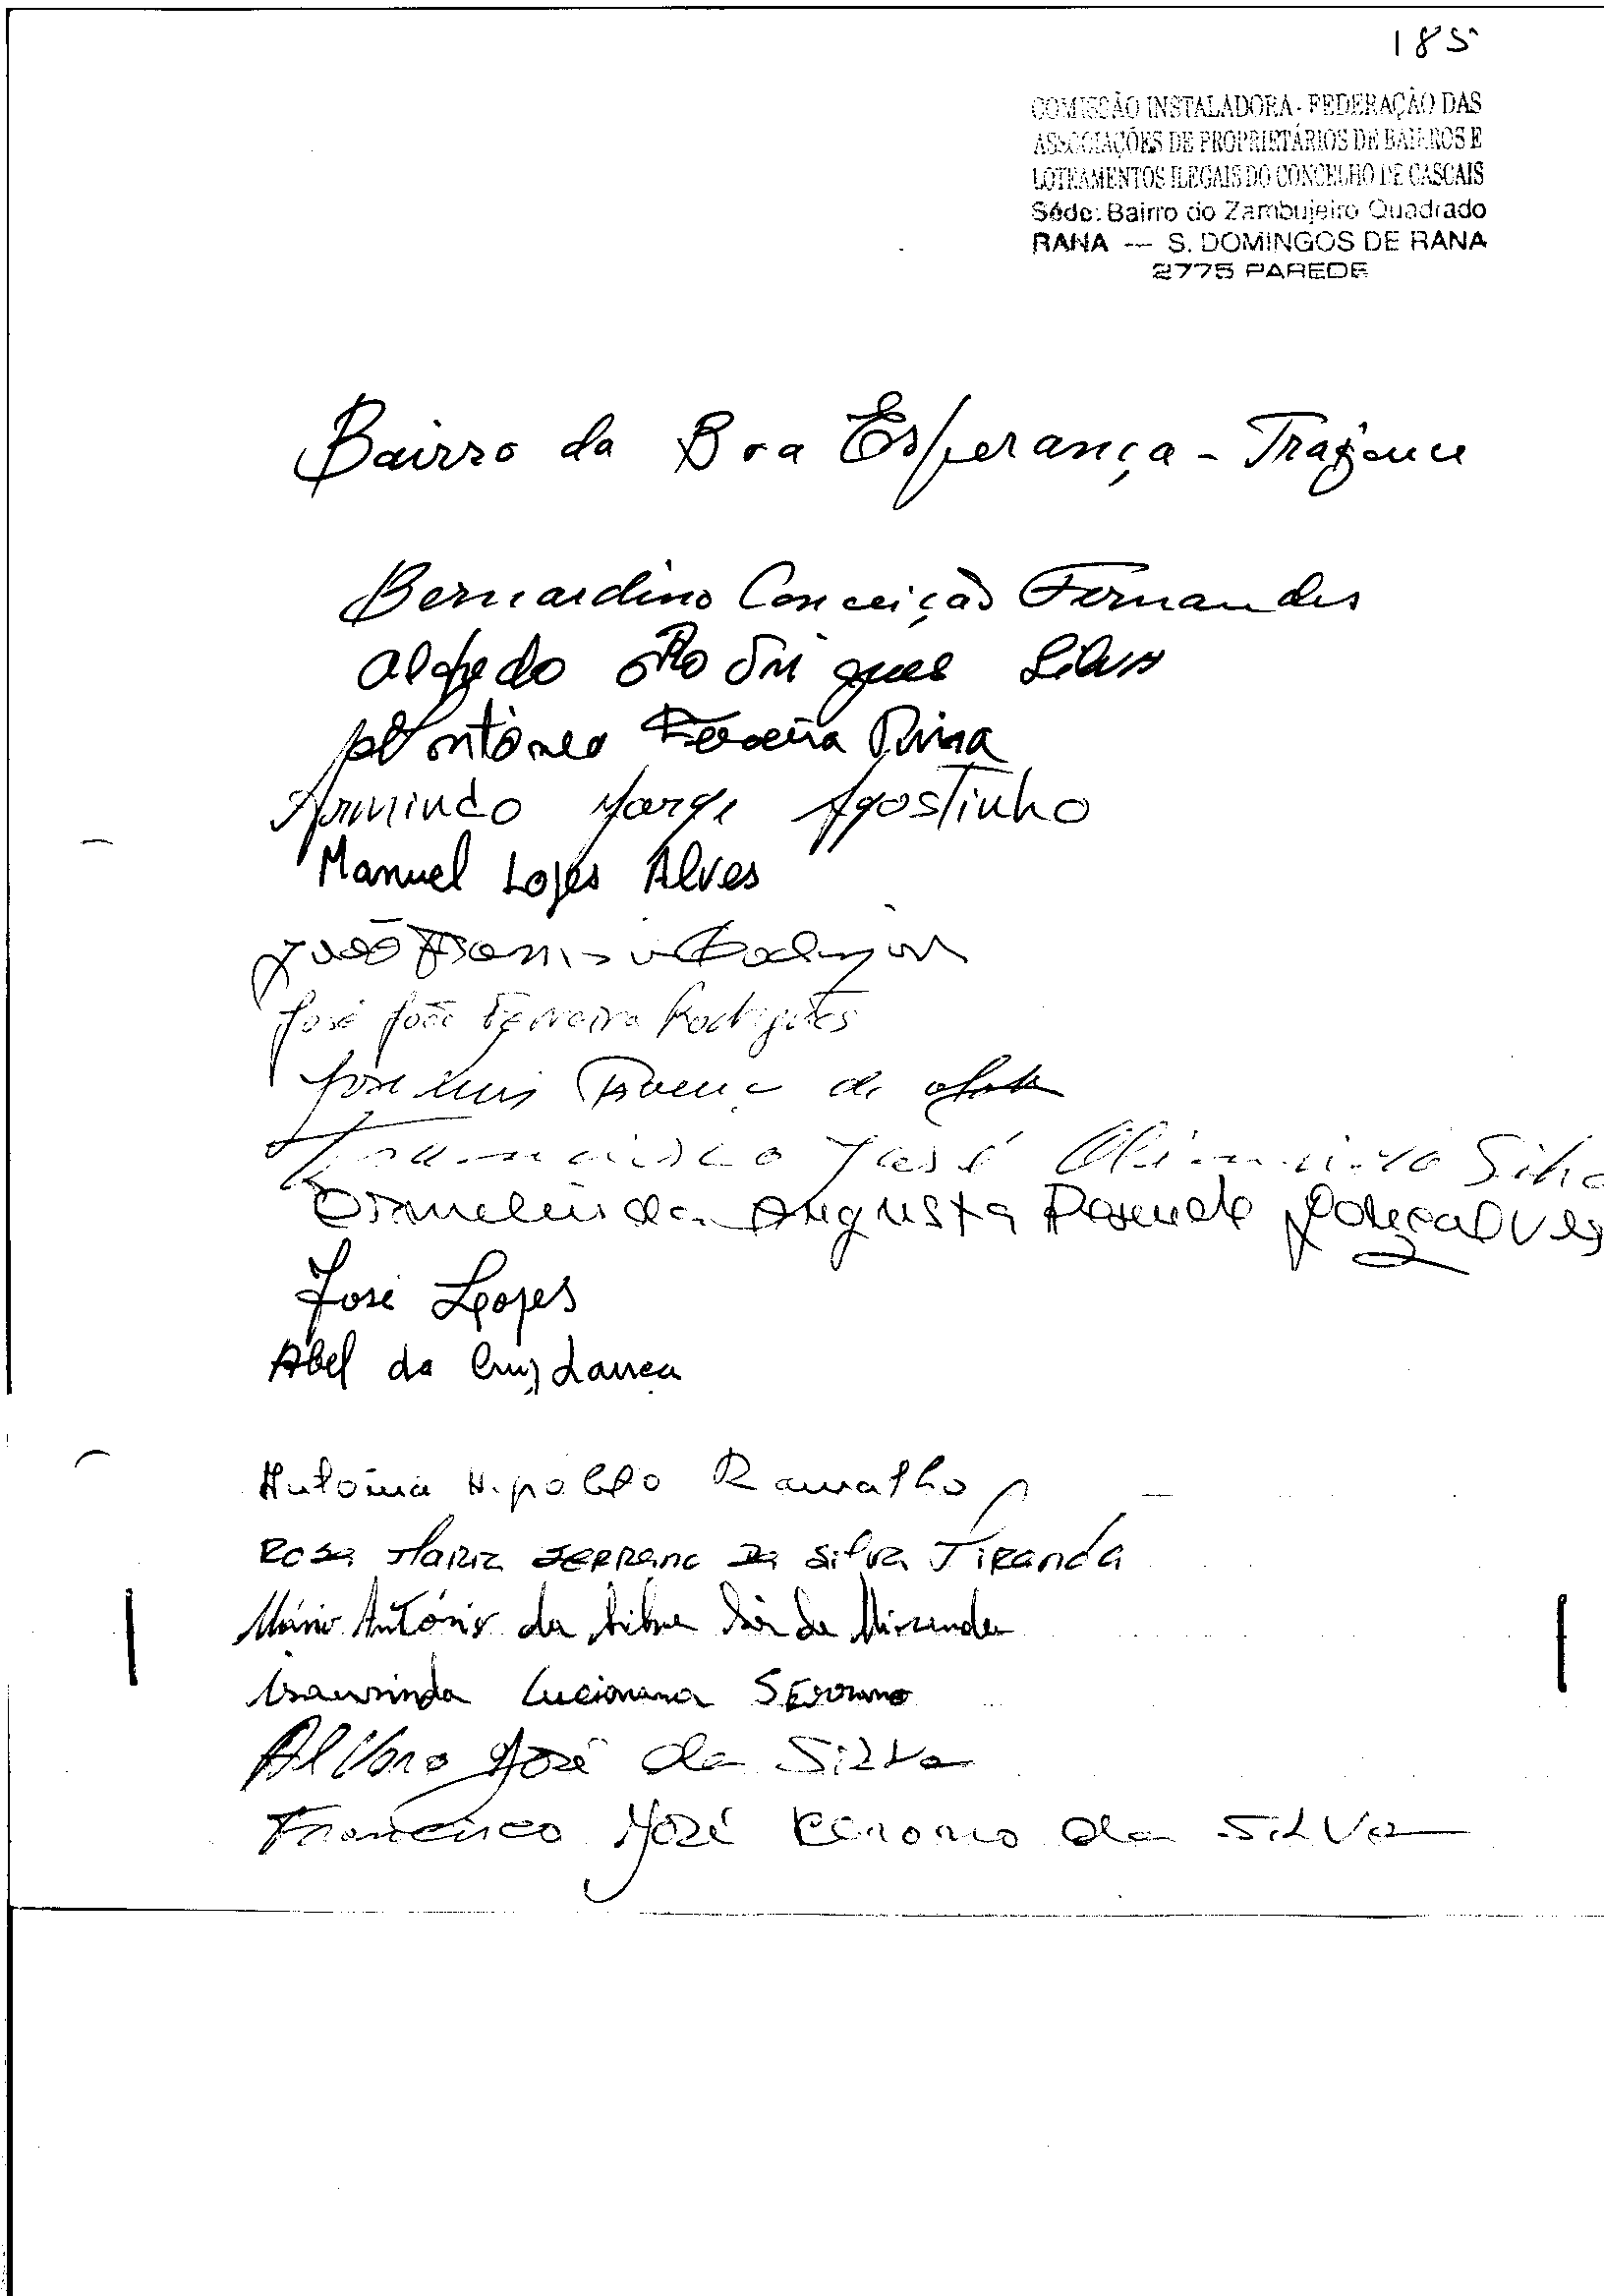 185
COMISSÃO INSTALADORA - FEDERAÇÃO DAS
ASSOCIAÇÕES DE PROPRIETÁRIOS DE BAIRROS E
LOTEAMENTOS ILEGAIS DO CONCELHO DE CASCAIS
Séde: Bairro do Zambujeiro Quadrado
RANA — S. DOMINGOS DE RANA
2775 PAREDE
Bairro da Boa Esperança - Trajouce
Bernardino Conceição Fernandes
Alfredo Rodrigues Silva
António Ferreira
Armindo Jorge Agostinho
Manuel Lopes Alves
João Rodrigues
José João Ferreira Rodrigues
José Luis de
Francisco José Silva
Augusta Gonçalves
José Lopes
Abel da Cruz
Ramalho
Rosa Maria Serrano Da Silva Miranda
Mário António da Silva Miranda
Luciana Serrano
Alvaro José da Silva
Francisco José da Silva